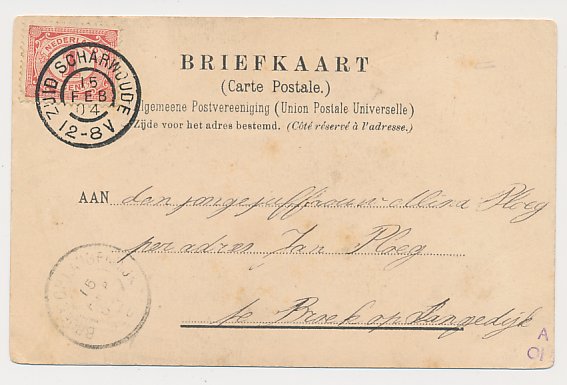 NEDERLAND
CENT
ZUID SCHARWOUDE
15
FEB
04
12-8A
BRIEFKAART
(Carte Postale.)
Algemeene Postvereeniging (Union Postale Universelle)
Zijde voor het adres bestemd. (Côté réservé à l'adresse.)
AAN den jonge juffrouw Ploeg
per adres Jan Ploeg
te Broek op Langedijk
15
A
01